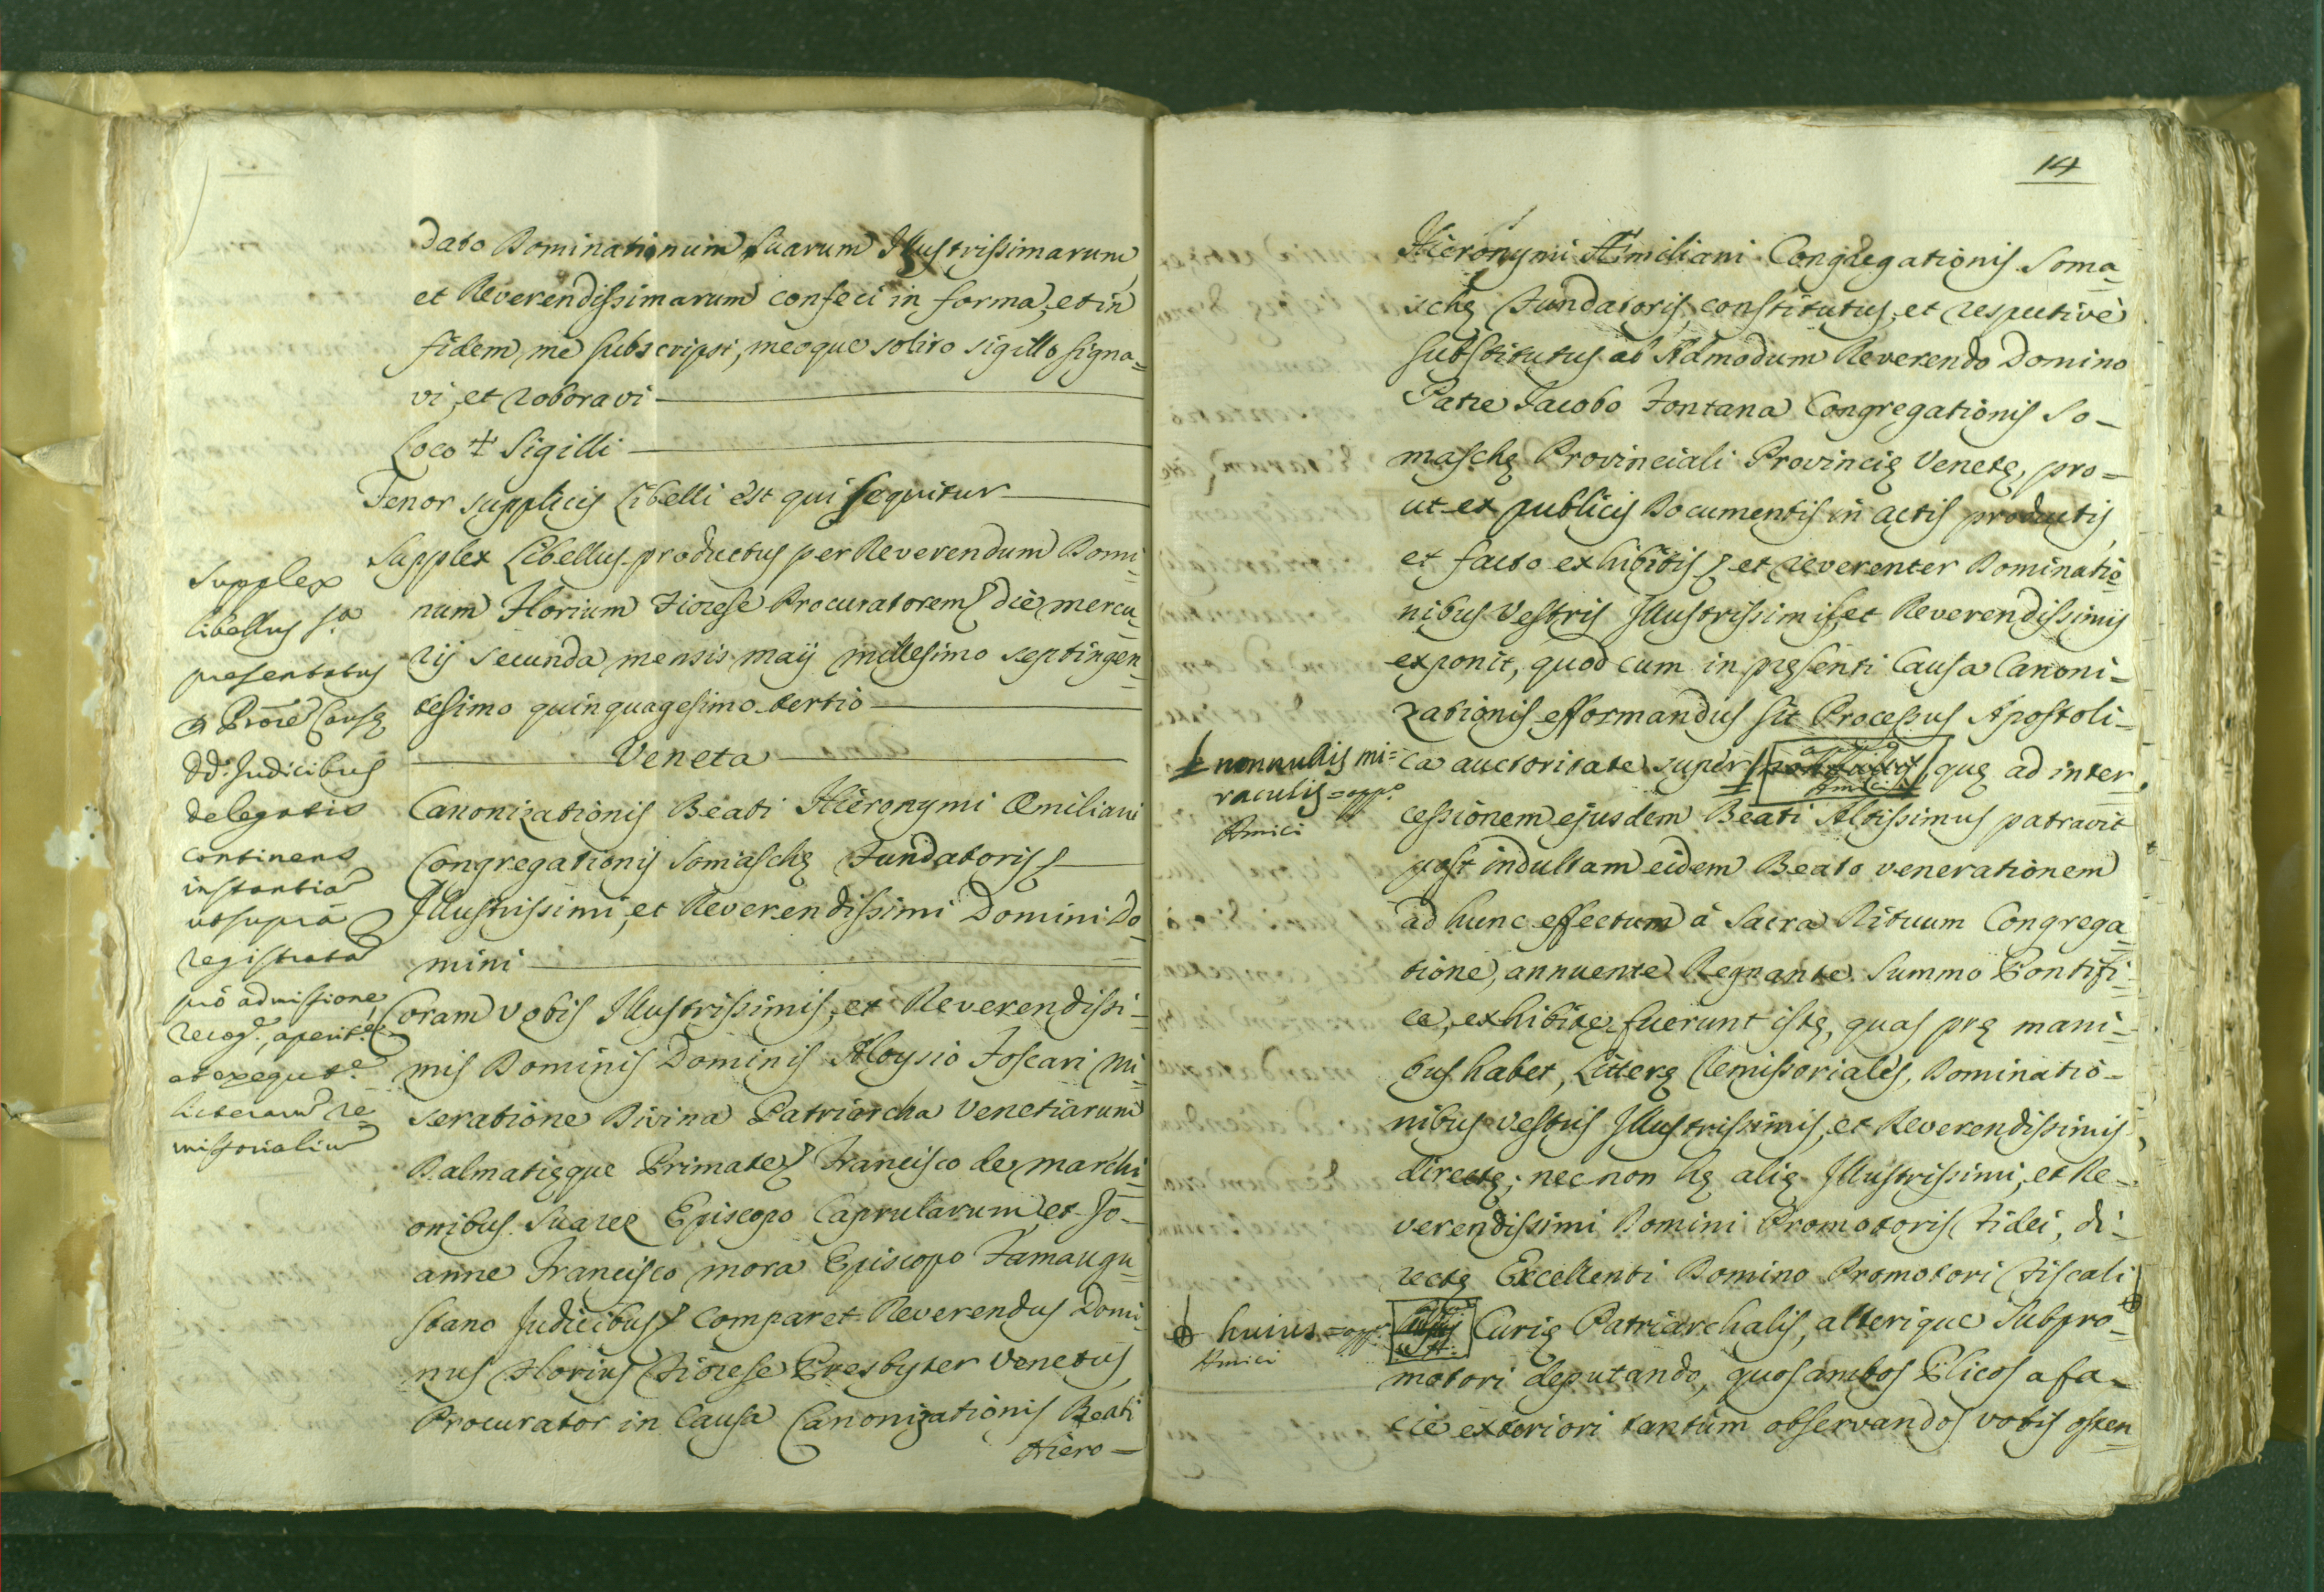 dato Dominationum Suarum Illustrissimarum,
et Reverendissimarum confeci in forma, et in
fidem me subscripsi, meoque solito sigillo signa=
vi, et roboravi
Loco + Sigilli
Tenor supplicis Libelli est qui sequitur
Supplex Libellus productus per Reverendum Domi=
num Florium Fiorese Procuratorem die mercu=
rij secunda mensis maij millesimo septingen=
tesimo quinquagesimo tertio
Veneta
Canonizationis Beati Hieronymi Æmiliani
Congregationis Somaschę Fundatoris
Illustrissimi, et Reverendissimi Domini Do=
mini
Coram vobis Illustrissimis, et Reverendissi=
mis Dominis Dominis Aloysio Foscari mi=
seratione Divina Patriarcha Venetiarum
Dalmatięque Primate, Francisco de marchi=
onibus Suarez Episcopo Caprularum, et Jo=
anne Francisco mora Episcopo Famaugu=
stano Judicibus comparet Reverendus Domi=
nus Florius Fiorese Presbyter Venetus,
Procurator in Causa Canonizationis Beati
Hiero=
Supplex
libellus
presentatus
a Prõre Causę
DD. Judicibus
delegatis
continens
instantia
ut supra
registrata
pro admissione,
recog., aperit.e
et exequt.e
literarum re=
missorialiu
14
Hieronymi Æmiliani Congregationis Soma=
schę Fundatoris, constitutus, et respective
substitutus ab Admodum Reverendo Domino
Patre Jacobo Fontana Congregationis So=
maschę Provinciali Provincię Venetę, pro=
ut ex publicis Documentis in actis productis,
et facto exhibitis, et reverenter Dominatio=
nibus Vestris Illustrissimis, et Reverendissimis
exponit, quod cum in pręsenti Causa Canoni=
zationis efformandus sit Processus Apostoli=
ca auctoritate super quę ad inter=
cessionem ejusdem Beati Altissimus patravit
post indultam eidem Beato venerationem
ad hunc effectum à Sacra Rituum Congrega=
tione, annuente Regnante Summo Pontifi=
ce, exhibitę fuerunt istę, quas prę mani=
bus habet, Litterę Remissoriales, Dominatio=
nibus vestris Illustrissimis, et Reverendissimis
directę; nec non hę alię Illustrissimi, et Re=
verendissimi Domini Promotoris Fidei, di=
rectę Excellenti Domino Promotori Fiscali
Curię Patriarchalis, alterique Subpro=
motori deputando, quos ambos Plicos a fa=
cie exteriori tantùm observandos vobis osten=
nonnullis mi=
raculis = app.o
Amici
huius = app.o
Amici